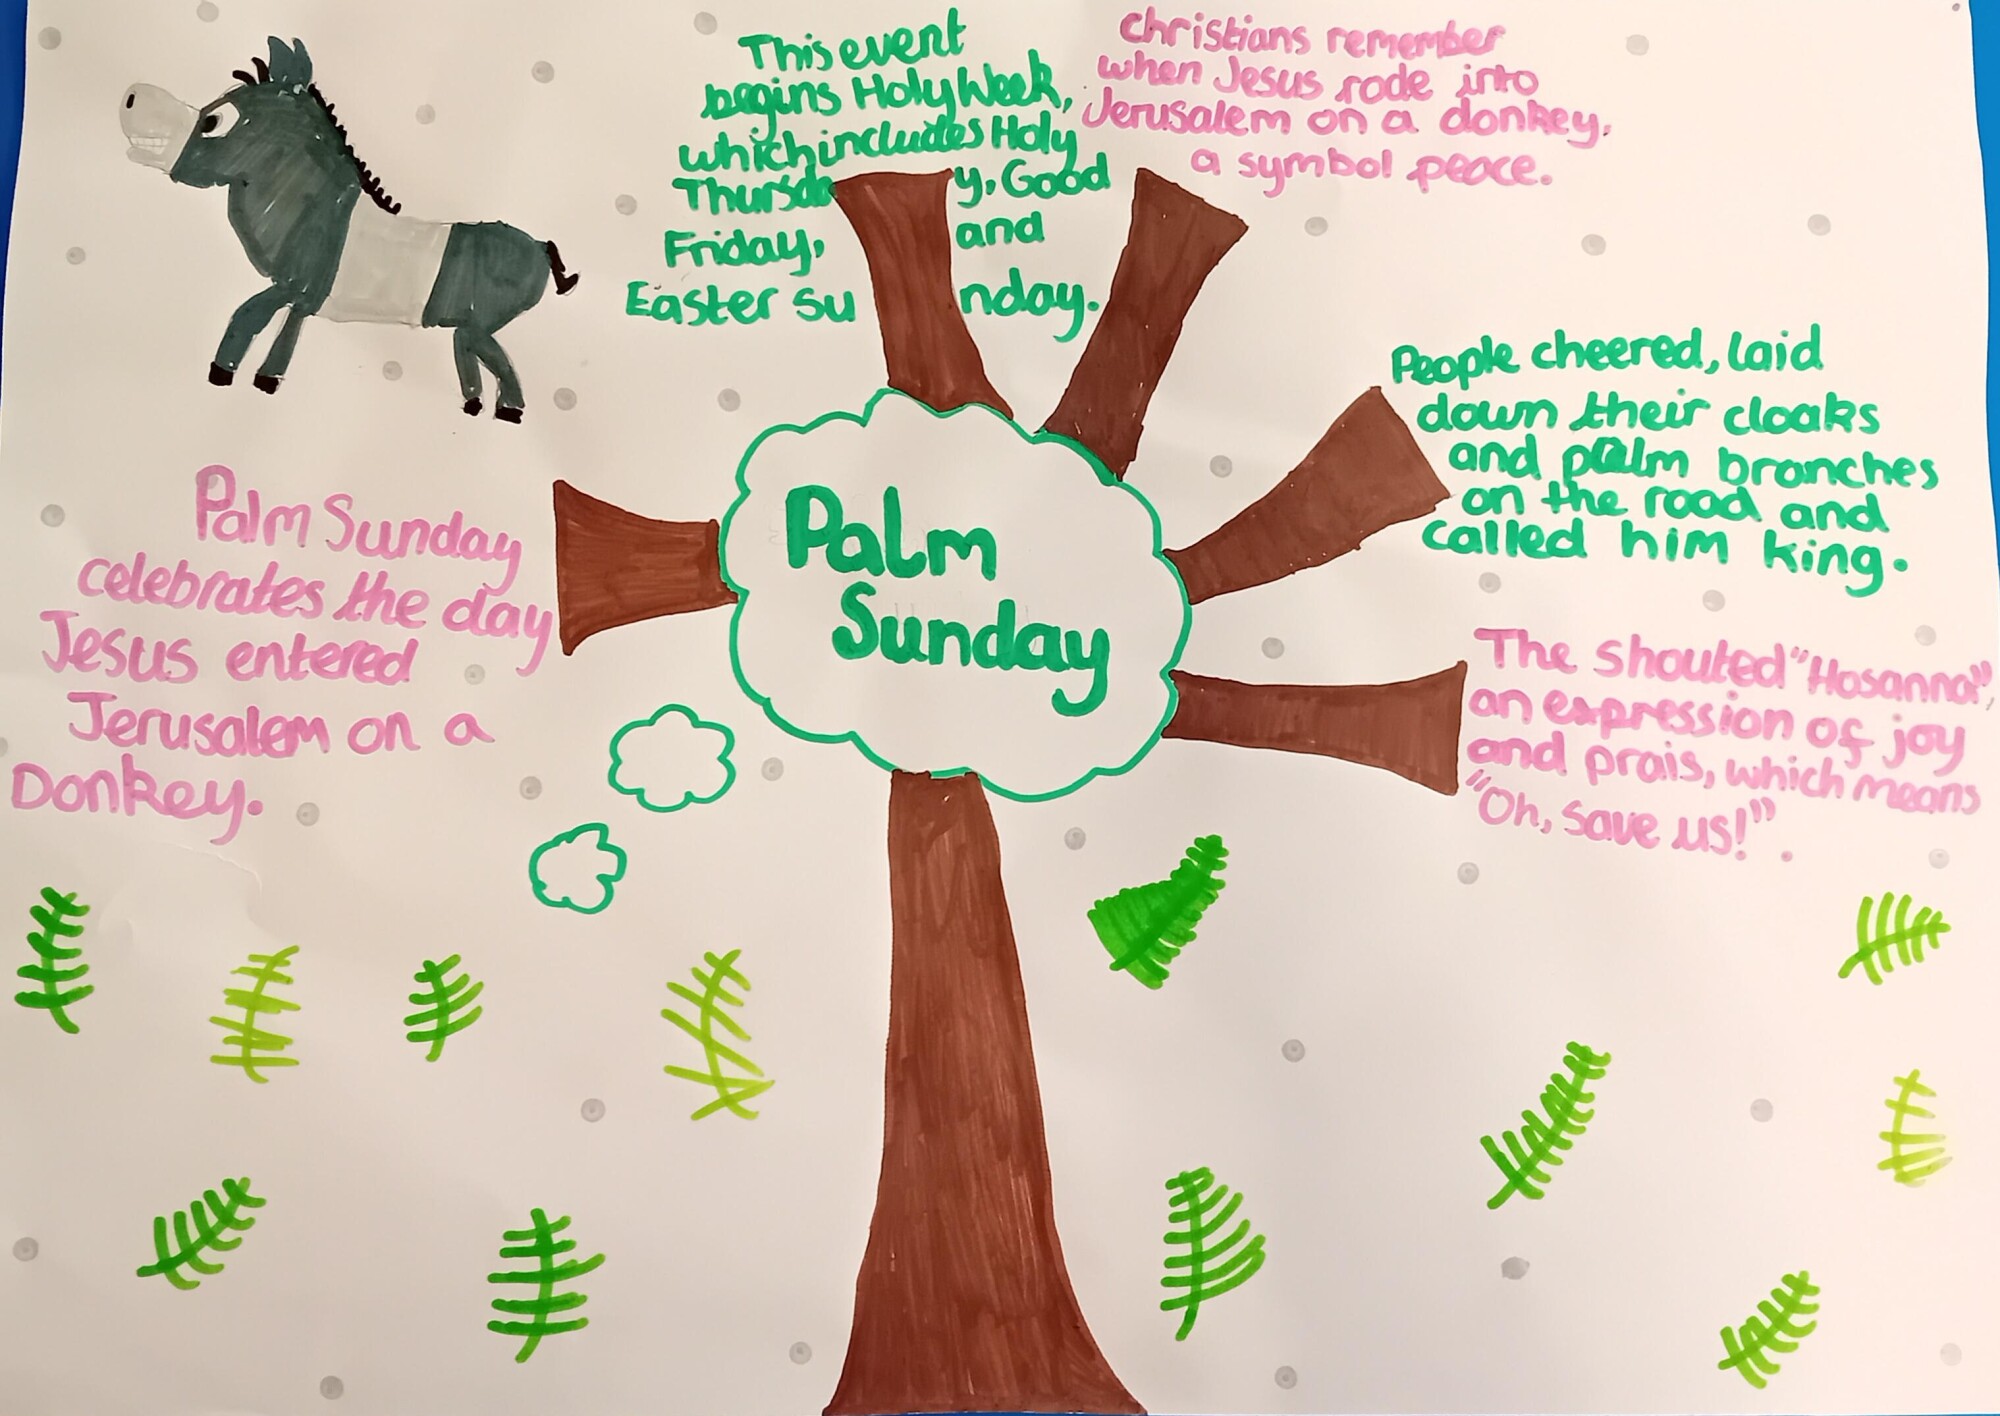 This event
begins Holy Week,
which includes Holy
Thursday, Good
Friday, and
Easter Sunday.
christians remember
when Jesus rode into
Jerusalem on a donkey,
a symbol peace.
People cheered, laid
down their cloaks
and palm branches
on the road and
called him king.
Palm Sunday
celebrates the day
Jesus entered
Jerusalem on a
Donkey.
Palm
Sunday
The shouted "Hosanna!",
an expression of joy
and prais, which means
"Oh, save us!".